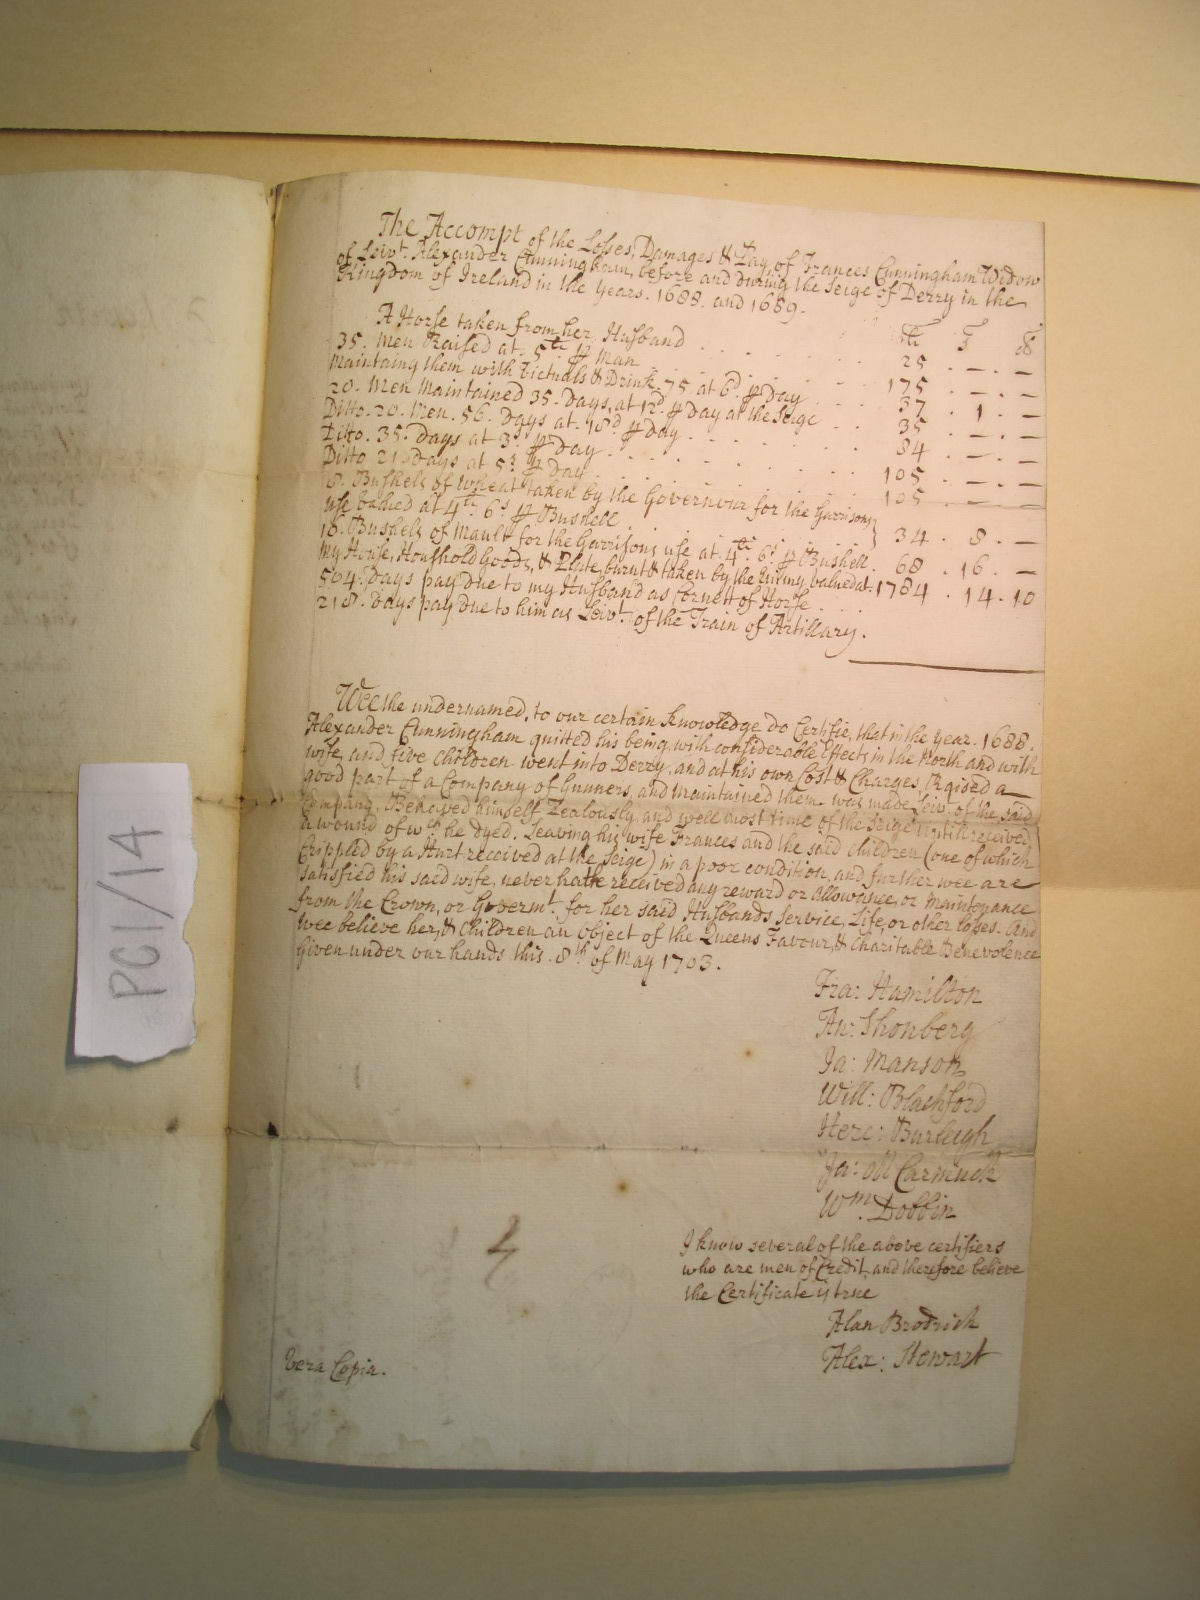 The Accompt of the Losses, Damages & Pay of Frances Cunningham Widow
of Leivt. Alexander Cunningham, before and during the Seige of Derry in the
Kingdom of Ireland in the Years. 1688. and 1689.
A Horse taken from her Husband . . . . 25 . — . —
35. Men Raised at. 5 ₶ Man . . . . 175 . — . —
Maintaing them with Victuals & Drink. 75 at 6d. ₶ Day 37 . 1 . —
20. Men Maintained 35. Days, at 12d ₶ Day at the Seige . . 35 . — . —
Ditto. 20. Men. 56. Days at. 18d ₶ Day . . . . 84 . — . —
Ditto. 35. Days at 3s ₶ Day . . . . 105 . — . —
Ditto 21 Days at 5s ₶ Day . . . . 105 — —
8. Bushels of Wheat taken by the Governour for the Garrisons
use valued at 4 6s ₶ Bushell } 34 . 8 . —
16. Bushels of Mault for the Garrisons use at. 4 6s ₶ Bushell. 68 . 16 . —
My House, Houshold Goods, & Plate, burnt & taken by the Enimy valued at. 1784 . 14 . 10
504. Days pay due to my Husband as Cornett of Horse . . . .
218. Days pay due to him as Leivt. of the Train of Artillary.
Wee the undernamed, to our certain Knowledge do Certifie, that in the year. 1688.
Alexander Cunningham quitted his being, with considerable Effects, in the North and with
wife, and five Children went into Derry, and at his own Cost & Charges, Raised a
good part of a Company of Gunners, and Maintained them was made Leivt. of the said
Company, Behaved himself Zealously and well most time of the Seige Untill received
a wound of wch he dyed. Leaving his wife Frances and the said Children (one of which
Crippled by a Hurt received at the Seige) in a poor condition, and further wee are
satisfied his said wife, never hath received any reward or Allowance, or Maintenance
from the Crown, or Governmt. for her said Husbands Service, Life, or other losses. And
wee believe her, & Children an object of the Queens Favour, & Charitable Benevolence
Given under our hands this. 8th of May 1703.
Fra: Hamilton
An: Shonberg
Ja: Manson
Will: Blachford
Herc: Burleigh
Ja: McCarmick
Wm. Dobbin
I know several of the above certifiers
who are men of Credit, and therefore believe
the Certificate is true
Alan Brodrick
Alex: Stewart
Vera Copia.
PC1/14